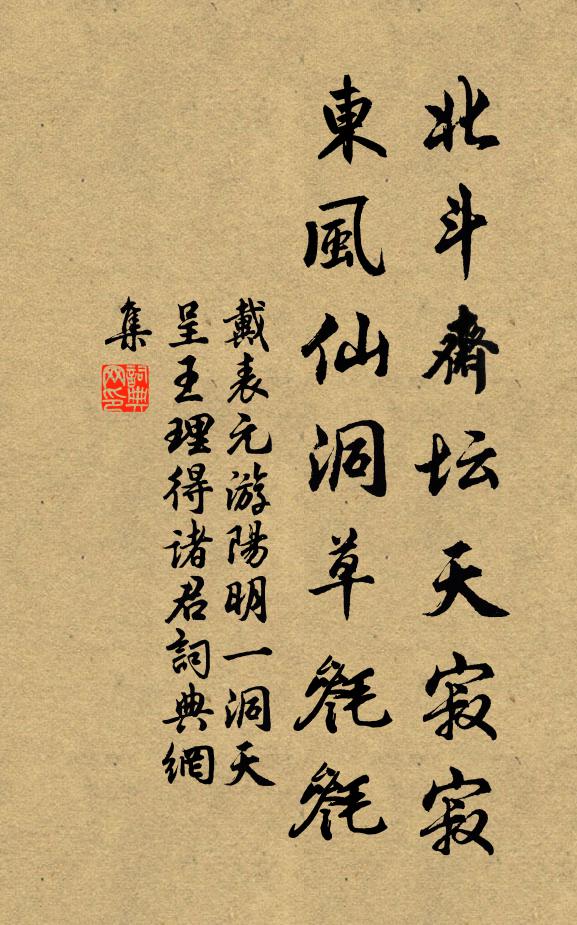 北斗齋坛天寂寂
東風仙洞草毿毿
戴表元游陽明一洞天
呈王理得诸君詞典網
集
詞典
网印